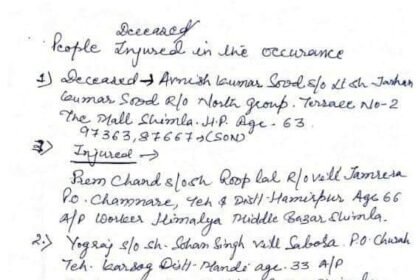 Deceased
People Injured in the occurance
1) Deceased → Avnish Kumar Sood s/o Lt sh. Jashan
Kumar Sood R/o North group. Terrace No-2
The Mall Shimla. H.P. Age. 63.
97363,87667→(SON)
Injured →
Prem Chand s/o sh Roop lal R/o vill Jamresa
P.O. Chamnare, Teh & Distt- Hamirpur Age 66
A/P Worker Himalya Middle Bazar Shimla.
2.) Yograj s/o sh. Sohan Singh vill Sabosa. P.O Churah
Teh. Karsog Distt- Mandi age. 33 A/P